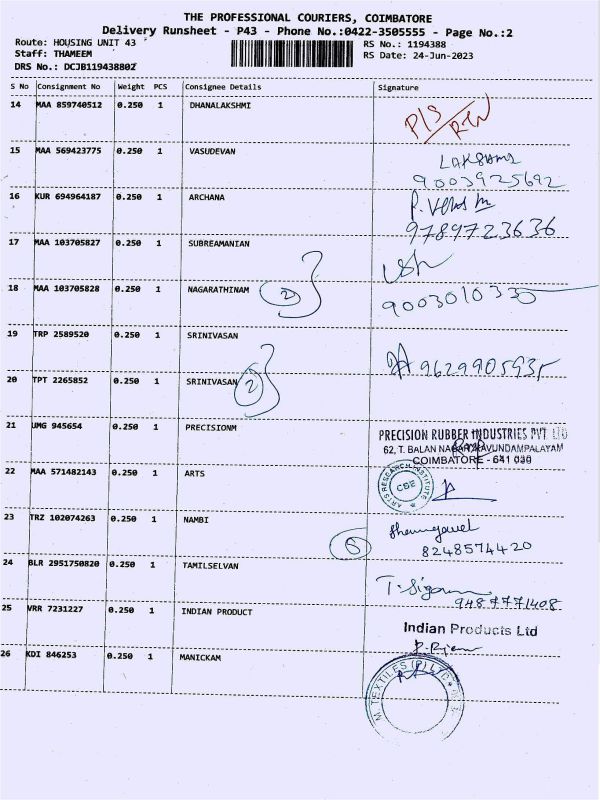 THE PROFESSIONAL COURIERS, COIMBATORE
Delivery Runsheet - P43 - Phone No.:0422-3505555 - Page No.:2
Route: HOUSING UNIT 43
RS No.: 1194388
Staff: THAMEEM
RS Date: 24-Jun-2023
DRS No.: DCJB119438802
S No Consignment No Weight PCS Consignee Details Signature
14 MAA 859740512 0.250 1 DHANALAKSHMI P/S RTN
15 MAA 569423775 0.250 1 VASUDEVAN
9003925692
16 KUR 694964187 0.250 1 ARCHANA
9789723636
17 MAA 103705827 0.250 1 SUBREAMANIAN
18 MAA 103705828 0.250 1 NAGARATHINAM 2 9003010330
19 TRP 2589520 0.250 1 SRINIVASAN
20 TPT 2265852 0.250 1 SRINIVASAN 2
21 UMG 945654 0.250 1 PRECISIONM PRECISION RUBBER INDUSTRIES PVT LTD
62, T. BALAN NAGAR, KAVUNDAMPALAYAM
COIMBATORE - 641 030
22 MAA 571482143 0.250 1 ARTS ARTS RESEARCH INSTITUTE CBE
23 TRZ 102074263 0.250 1 NAMBI 5
8248574420
24 BLR 2951750820 0.250 1 TAMILSELVAN
9487771408
25 VRR 7231227 0.250 1 INDIAN PRODUCT Indian Products Ltd
26 KDI 846253 0.250 1 MANICKAM